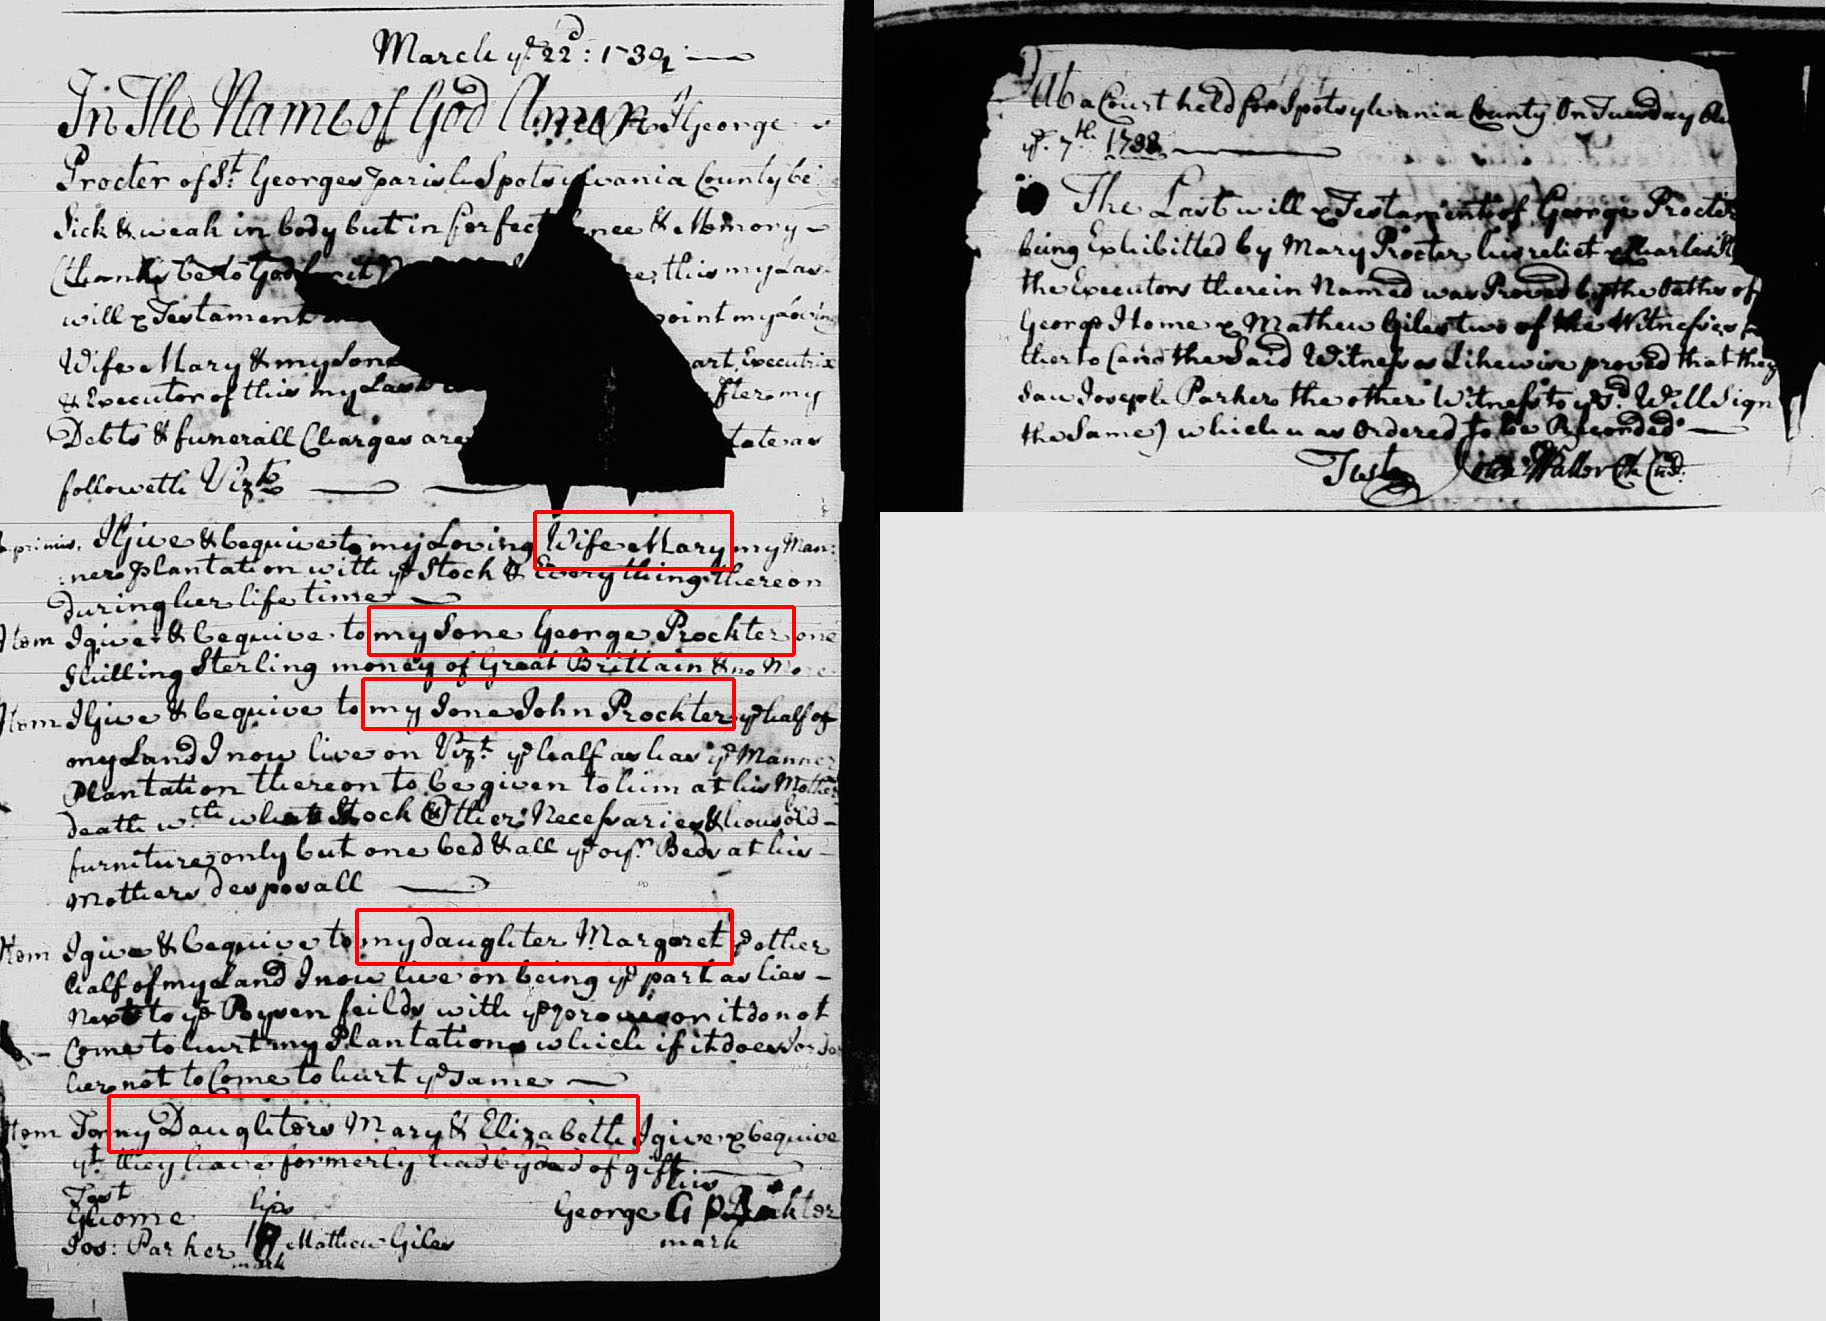 March ye 22d: 1730/1
In The Name of God Amen I George
Procter of St. Georges parish Spotsylvania County be
Sick & weak in body but in perfect & Memory
(thanks be to God for it this my Las
will & Testament point my Loving
Wife Mary & my Sone art Executrix
& Executor of this my Last after my
Debts & funerall Charges are tate as
followeth Vizt
Imprimis. I Give & bequive to my Loving Wife Mary my Man:
:ner plantation with ye Stock & Everything thereon
during her life time
Item I give & bequive to my Sone George Prockter one
Shilling Sterling money of Great Brittain & no More
Item I Give & bequive to my Sone John Prockter ye half of
my Land I now live on Vizt. ye half as has ye Manner
Plantation thereon to be given to him at his Mothers
death wth what Stock & Other Necessaries & housold
furniture only but one bed & all ye oyr. Beds at his
Mothers desposall
Item I give & bequive to my daughter Margaret ye other
half of my Land I now live on being ye part as lies
Next to ye Poysen feilds with ye provison it do not
Come to hurt my Plantation which if it does
her not to Come to hurt ye same
Item To my Daughters Mary & Elizabeth I give & bequive
yt. they have formerly had by ded of gift
Test his
GHome his George G P Prockter
Jos: Parker Mathew Giles mark
mark
At a Court held for Spotsylvania County On Tuesday
ye. 7th. 1738
The Last will & Testament of George Procter
being Exhibitted by Mary Procter his relict & Charles
the Executors therein Named was Proved by the Oaths of
George Home & Mathew Giles two of the Witnesses
therto (and the Said Witnesses Likewise proved that they
saw Joseph Parker the other Witness to ye Sd. Will Sign
the Same) which was Ordered to be Recorded
Test John Waller Ck Cur.